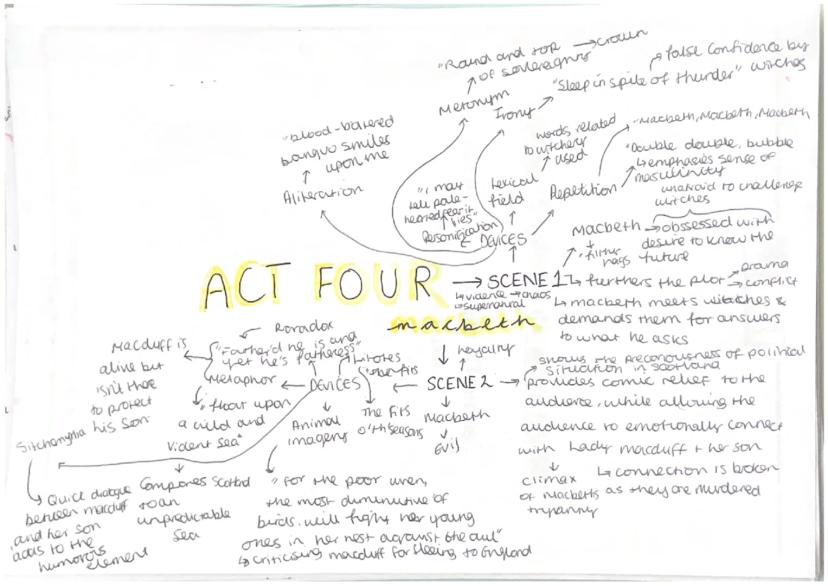 "Round and top → crown
of sovereignty
Metonym
"Sleep in spite of thunder"
false confidence by
witches
Irony
"blood-boltered
banquo smiles
upon me
Aliteration
"I may
tell pale-
hearted fear it
lies"
Personification
words related
to witchery
used
Lexical
field
Repetition
"Macbeth, Macbeth, Macbeth
"Double double, bubble
emphasies sense of
masculinity
unafraid to challenge
witches
DEVICES
Macbeth → obssessed with
desire to know the
future
"filthy
hags
ACT FOUR
macbeth
SCENE 1
violence → chaos
supernatural
furthers the plot → drama
→ conflict
macbeth meets witches &
demands them for answers
to what he asks
SCENE 2
loyalty
Macbeth
Evil
shows the precariousness of political
situation in scotland
provides comic relief to the
audience, while allowing the
audience to emotionally connect
with Lady macduff + her son
connection is broken
as they are murdered
climax
of macbeths
tryanny
DEVICES
Paradox
"Father'd he is and
yet he's fatherless"
Macduff is
alive but
isn't there
to protect
his son
Metaphor
"float upon
a wild and
violent sea"
Compares Scotland
to an
unpredictable
sea
The fits
o'th seasons
Animal
imagery
"For the poor wren,
the most diminutive of
birds, will fight her young
ones in her nest against the owl"
criticising macduff for fleeing to England
Sitchomythia
Quick dialogue
between macduff
and her son
adds to the
humorous
element